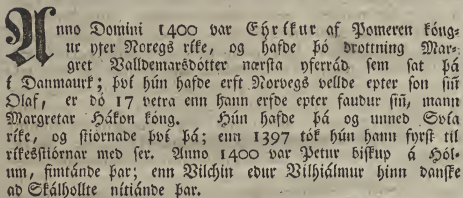 Anno Domini 1400 var Eyrikur af Pomeren kóng=
ur yfer Noregs rike, og hafde þó drottning Mar=
gret Valldemarsdótter nærsta yferráð sem sat þá
í Danmaurk; því hún hafde erft Norvegs vellde epter son siñ
Olaf, er dó 17 vetra enn hann erfde epter faudur siñ, mann
Margretar Hákon kóng. Hún hafde þá og unneð Svía
rike, og stiornade því þá; enn 1397 tók hún hann fyrst til
rikesstiórnar með ser. Anno 1400 var Petur biskup á Hól=
um, fimtánde þar; enn Vilchin edur Vilhiálmur hinn danske
að Skálhollte nitiánde þar.